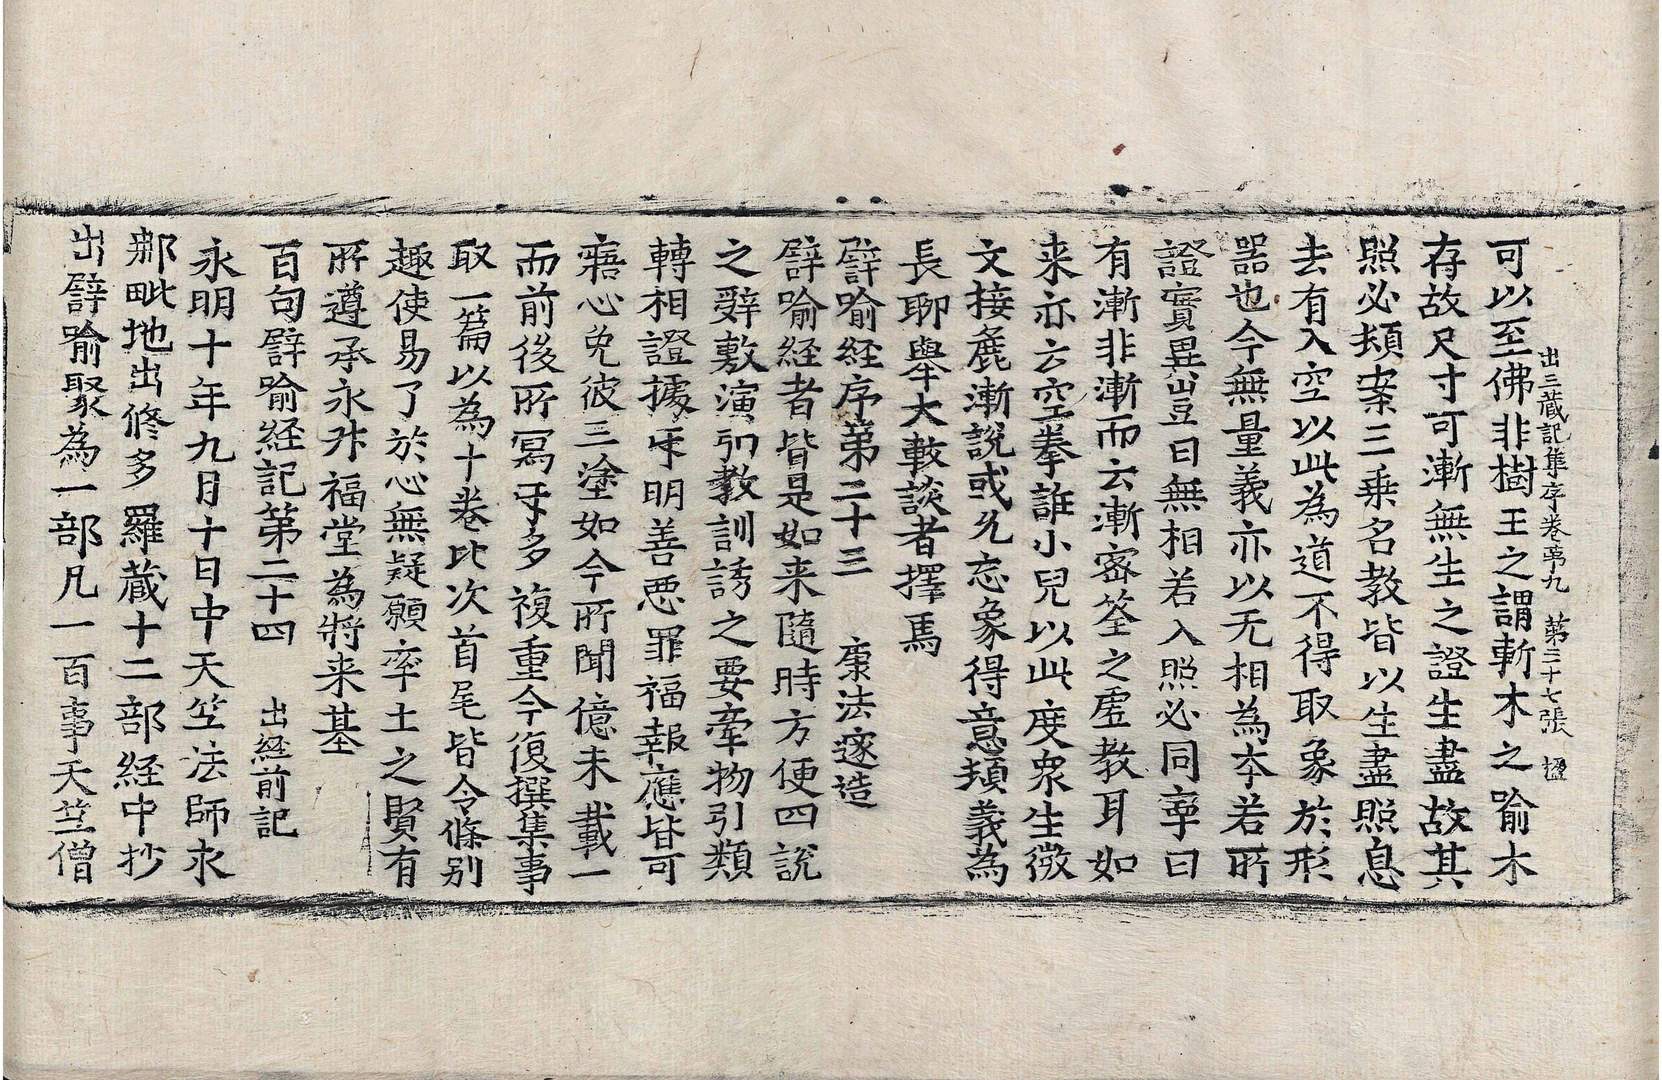 出三蔵記集序卷苐九 第三十七張 楹
可以至佛非樹王之謂斬木之喻木
存故尺寸可漸無生之證生盡故其
照必頓案三乗名教皆以生盡照息
去有入空以此為道不得取象於形
器也今無量義亦以无相為夲若所
證實異豈曰無相若入照必同寧曰
有漸非漸而云漸密筌之虚教耳如
来亦云空拳誑小兒以此度衆生微
文接麁漸說或允忘象得意頓義為
長聊舉大較談者擇焉
譬喻経序第二十三 康法邃造
譬喻経者皆是如来隨時方便四說
之辭敷演弘教訓誘之要牽物引類
轉相證據互明善惡罪福報應皆可
寤心免彼三塗如今所聞億未載一
而前後所寫互多複重今復撰集事
取一篇以為十卷比次首尾皆令條别
趣使易了於心無疑願率土之賢有
所遵承永升福堂為將来基
百句譬喻経記第二十四 出経前記
永明十年九月十日中天竺法師求
那毗地出修多羅蔵十二部経中抄
出譬喻聚為一部凡一百事天竺僧